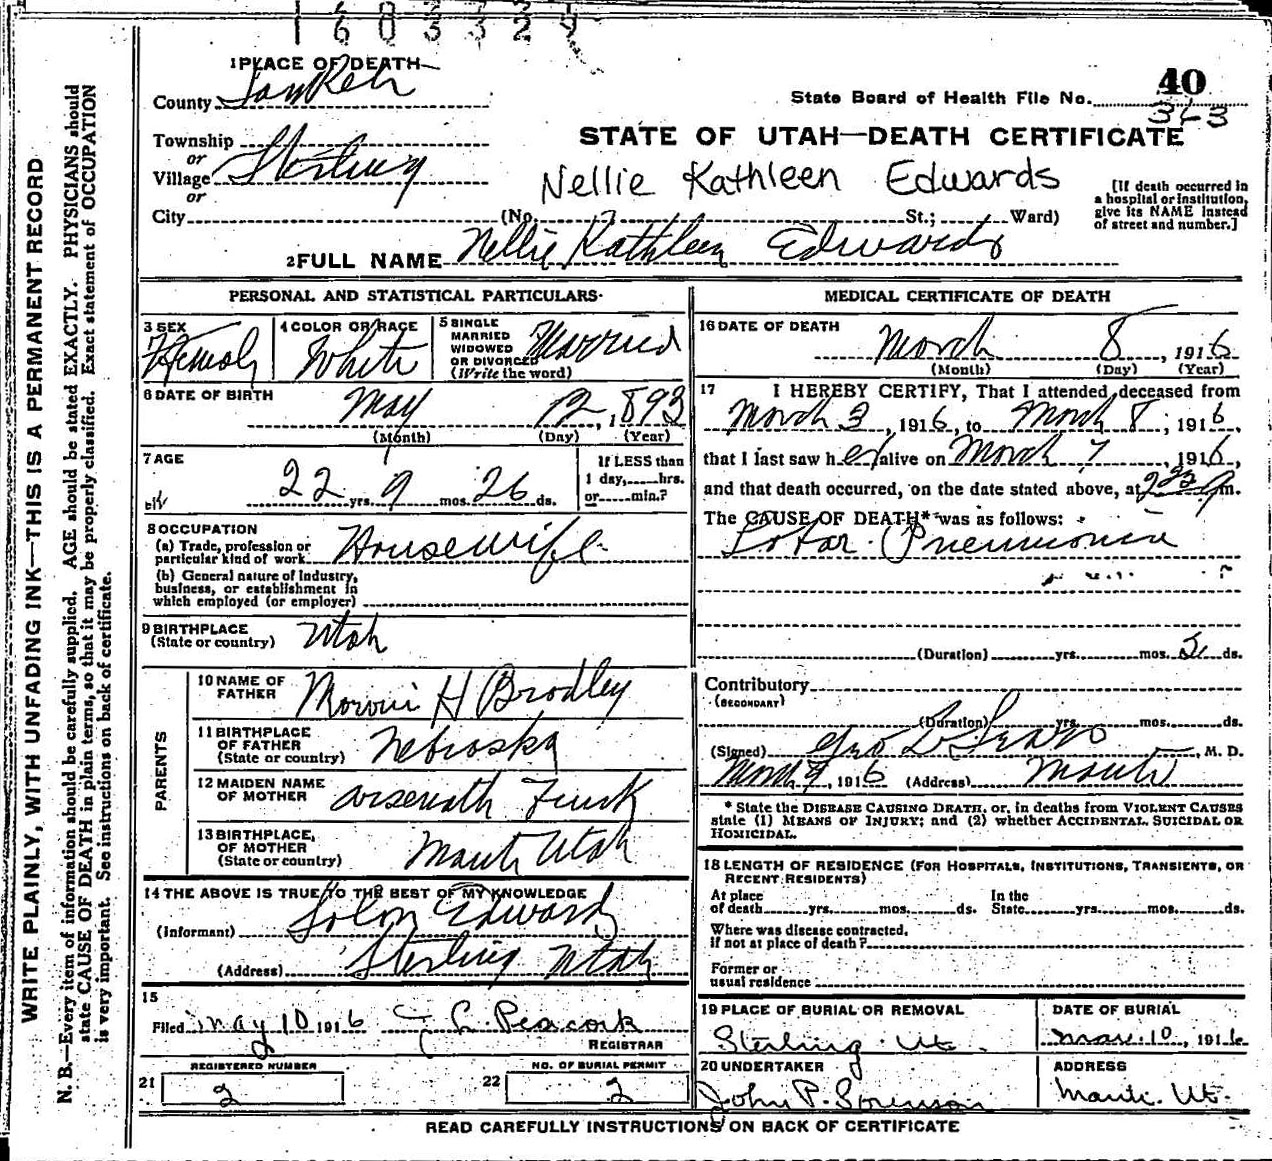 1683324
1 PLACE OF DEATH
County SanPete
40
State Board of Health File No. 363
STATE OF UTAH—DEATH CERTIFICATE
Township
or
Village Sterling
or
Nellie Kathleen Edwards
[If death occurred in a hospital or institution, give its NAME instead of street and number.]
City (No. St.; Ward)
2 FULL NAME Nellie Kathleen Edwards
PERSONAL AND STATISTICAL PARTICULARS
3 SEX Female
4 COLOR OR RACE White
5 SINGLE MARRIED WIDOWED OR DIVORCED (Write the word) Married
6 DATE OF BIRTH May 12, 1893
(Month) (Day) (Year)
7 AGE 22 yrs. 9 mos. 26 ds.
If LESS than 1 day, hrs. or min.?
8 OCCUPATION
(a) Trade, profession or particular kind of work Housewife
(b) General nature of industry, business, or establishment in which employed (or employer)
9 BIRTHPLACE (State or country) Utah
PARENTS
10 NAME OF FATHER Moroni H Bradley
11 BIRTHPLACE OF FATHER (State or country) Nebraska
12 MAIDEN NAME OF MOTHER Arsenath Funk
13 BIRTHPLACE, OF MOTHER (State or country) Manti Utah
14 THE ABOVE IS TRUE TO THE BEST OF MY KNOWLEDGE
(Informant) Solon Edwards
(Address) Sterling Utah
15
Filed May 10 1916 L. Peacock
REGISTRAR
REGISTERED NUMBER
21 2
NO. OF BURIAL PERMIT
22 2
MEDICAL CERTIFICATE OF DEATH
16 DATE OF DEATH
March 8, 1916
(Month) (Day) (Year)
17 I HEREBY CERTIFY, That I attended deceased from
March 3, 1916, to March 8, 1916,
that I last saw her alive on March 7, 1916,
and that death occurred, on the date stated above, at m.
The CAUSE OF DEATH* was as follows:
Lobar Pneumonia
(Duration) yrs. mos. 5 ds.
Contributory
(SECONDARY)
(Duration) yrs. mos. ds.
(Signed) Geo L Sears, M. D.
March 9, 1916 (Address) Manti
* State the DISEASE CAUSING DEATH, or, in deaths from VIOLENT CAUSES
state (1) MEANS OF INJURY; and (2) whether ACCIDENTAL, SUICIDAL OR
HOMICIDAL.
18 LENGTH OF RESIDENCE (FOR HOSPITALS, INSTITUTIONS, TRANSIENTS, OR
RECENT RESIDENTS)
At place of death yrs. mos. ds. In the State yrs. mos. ds.
Where was disease contracted,
if not at place of death?
Former or
usual residence
19 PLACE OF BURIAL OR REMOVAL
Sterling Ut.
DATE OF BURIAL
Mar. 10, 1916
20 UNDERTAKER
John P. Sorenson
ADDRESS
Manti. Ut.
READ CAREFULLY INSTRUCTIONS ON BACK OF CERTIFICATE
WRITE PLAINLY, WITH UNFADING INK—THIS IS A PERMANENT RECORD
N. B.—Every item of information should be carefully supplied. AGE should be stated EXACTLY. PHYSICIANS should
state CAUSE OF DEATH in plain terms, so that it may be properly classified. Exact statement of OCCUPATION
is very important. See instructions on back of certificate.